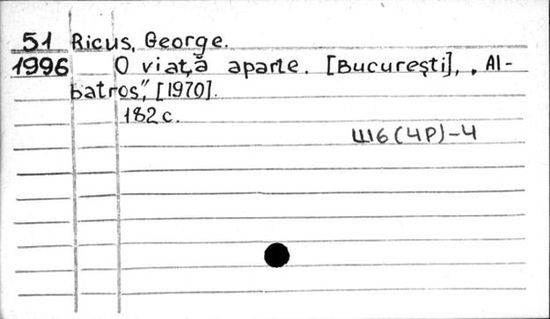 51 Ricus, George.
1996 O viaţă aparte. [Bucureşti], „Al-
batros”, [1970].
182 c.
Ш6(4Р)-4